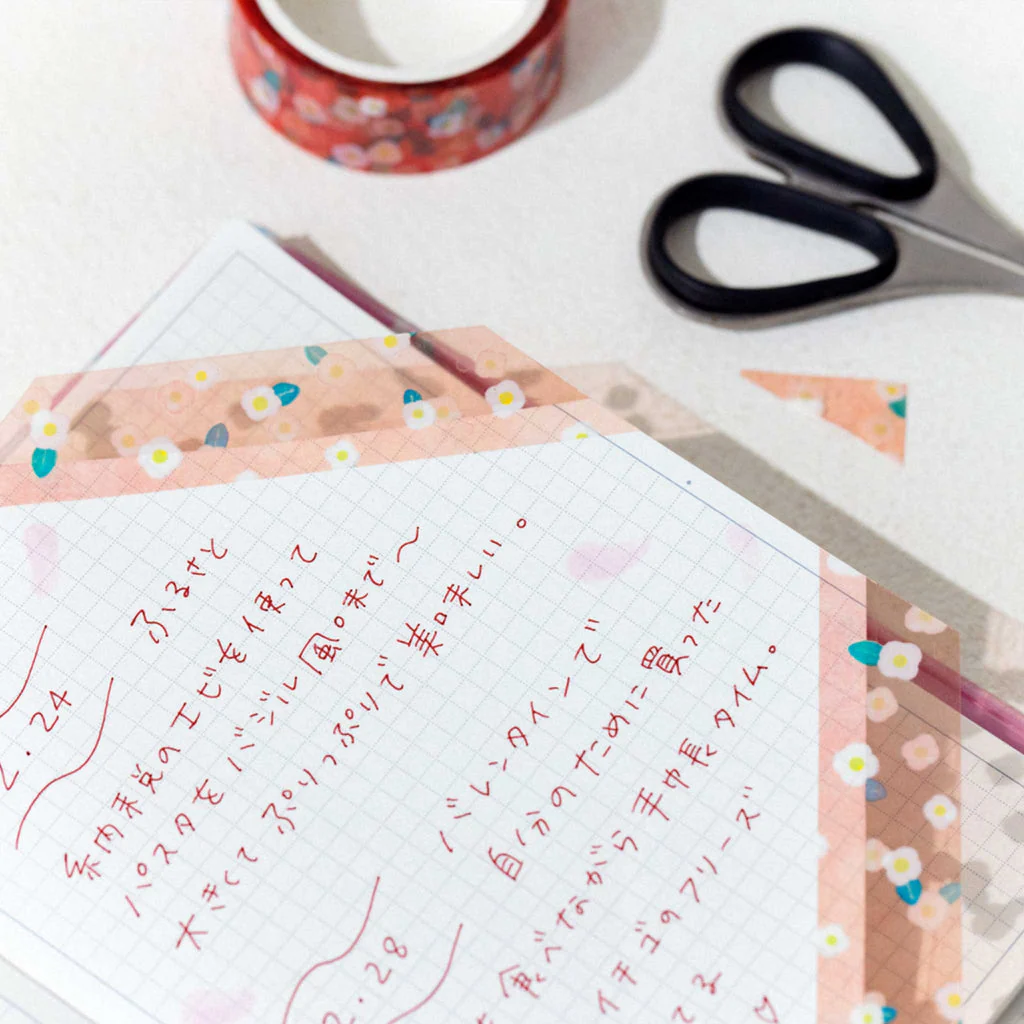 2.24
ふるさと
納税のエビを使って
パスタをバジル風味で〜
大きくてぷりっぷりで美味しい。
2.28
バレンタインで
自分のために買った
食べながら手帳タイム。
イチゴのフリーズ
てる
♡